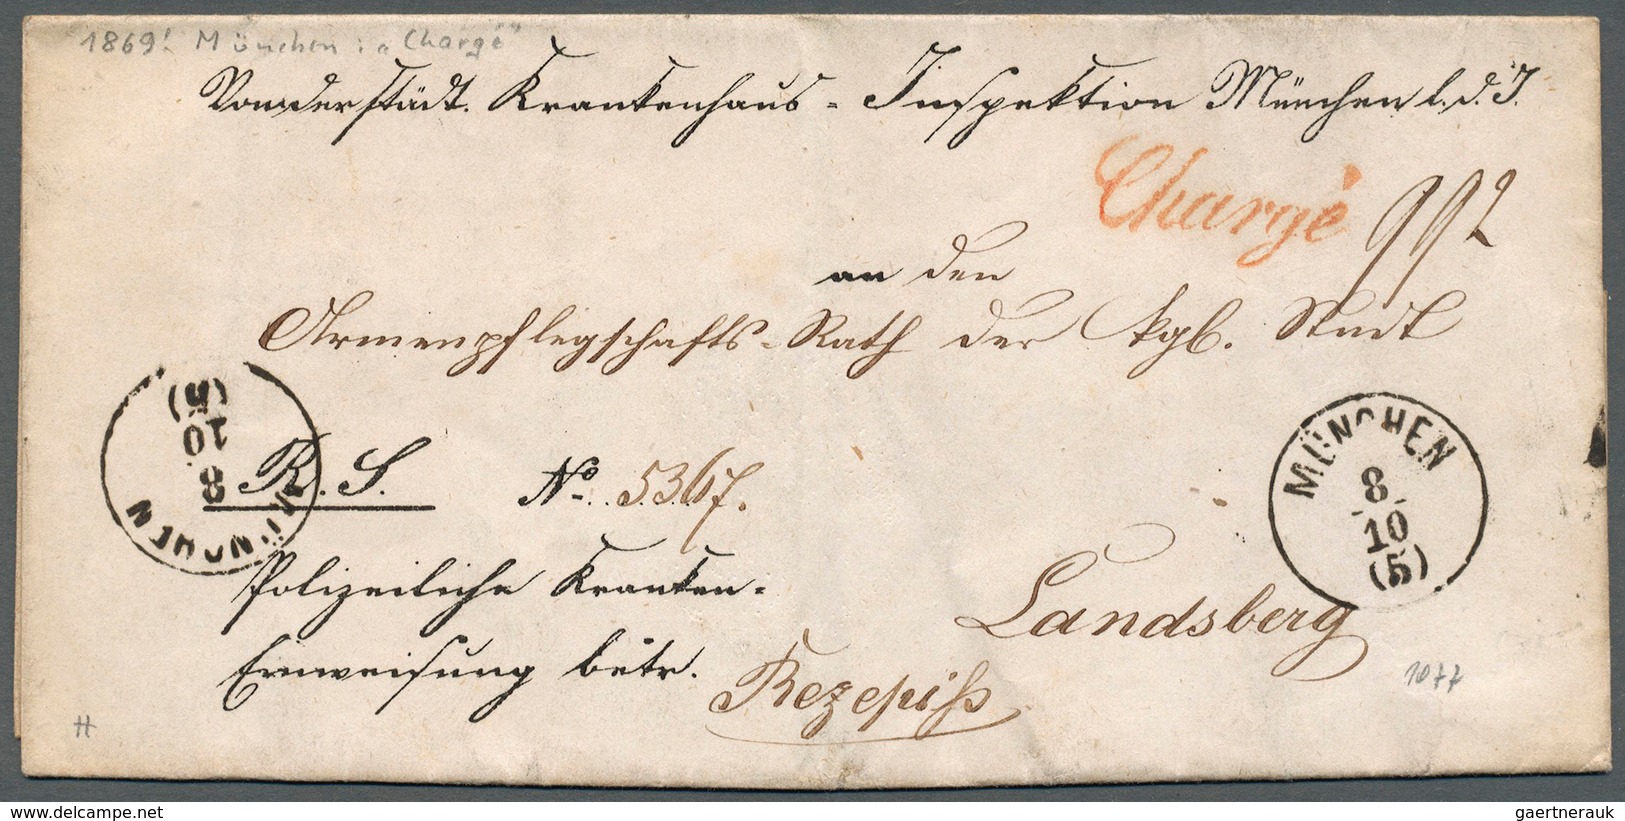 1869! München: "Chargé"
Von der städt. Krankenhaus - Inspektion München l. d. I.
Chargé 992
an den
Armenpflegschafts-Rath der kgl. Stadt
MÜNCHEN
8
10
(5)
MÜNCHEN
8
10
(5)
R. S. No. 5367.
Polizeiliche Kranken-
Einweisung betr.
Landsberg
Rezepiß
1077
gaertnerauk